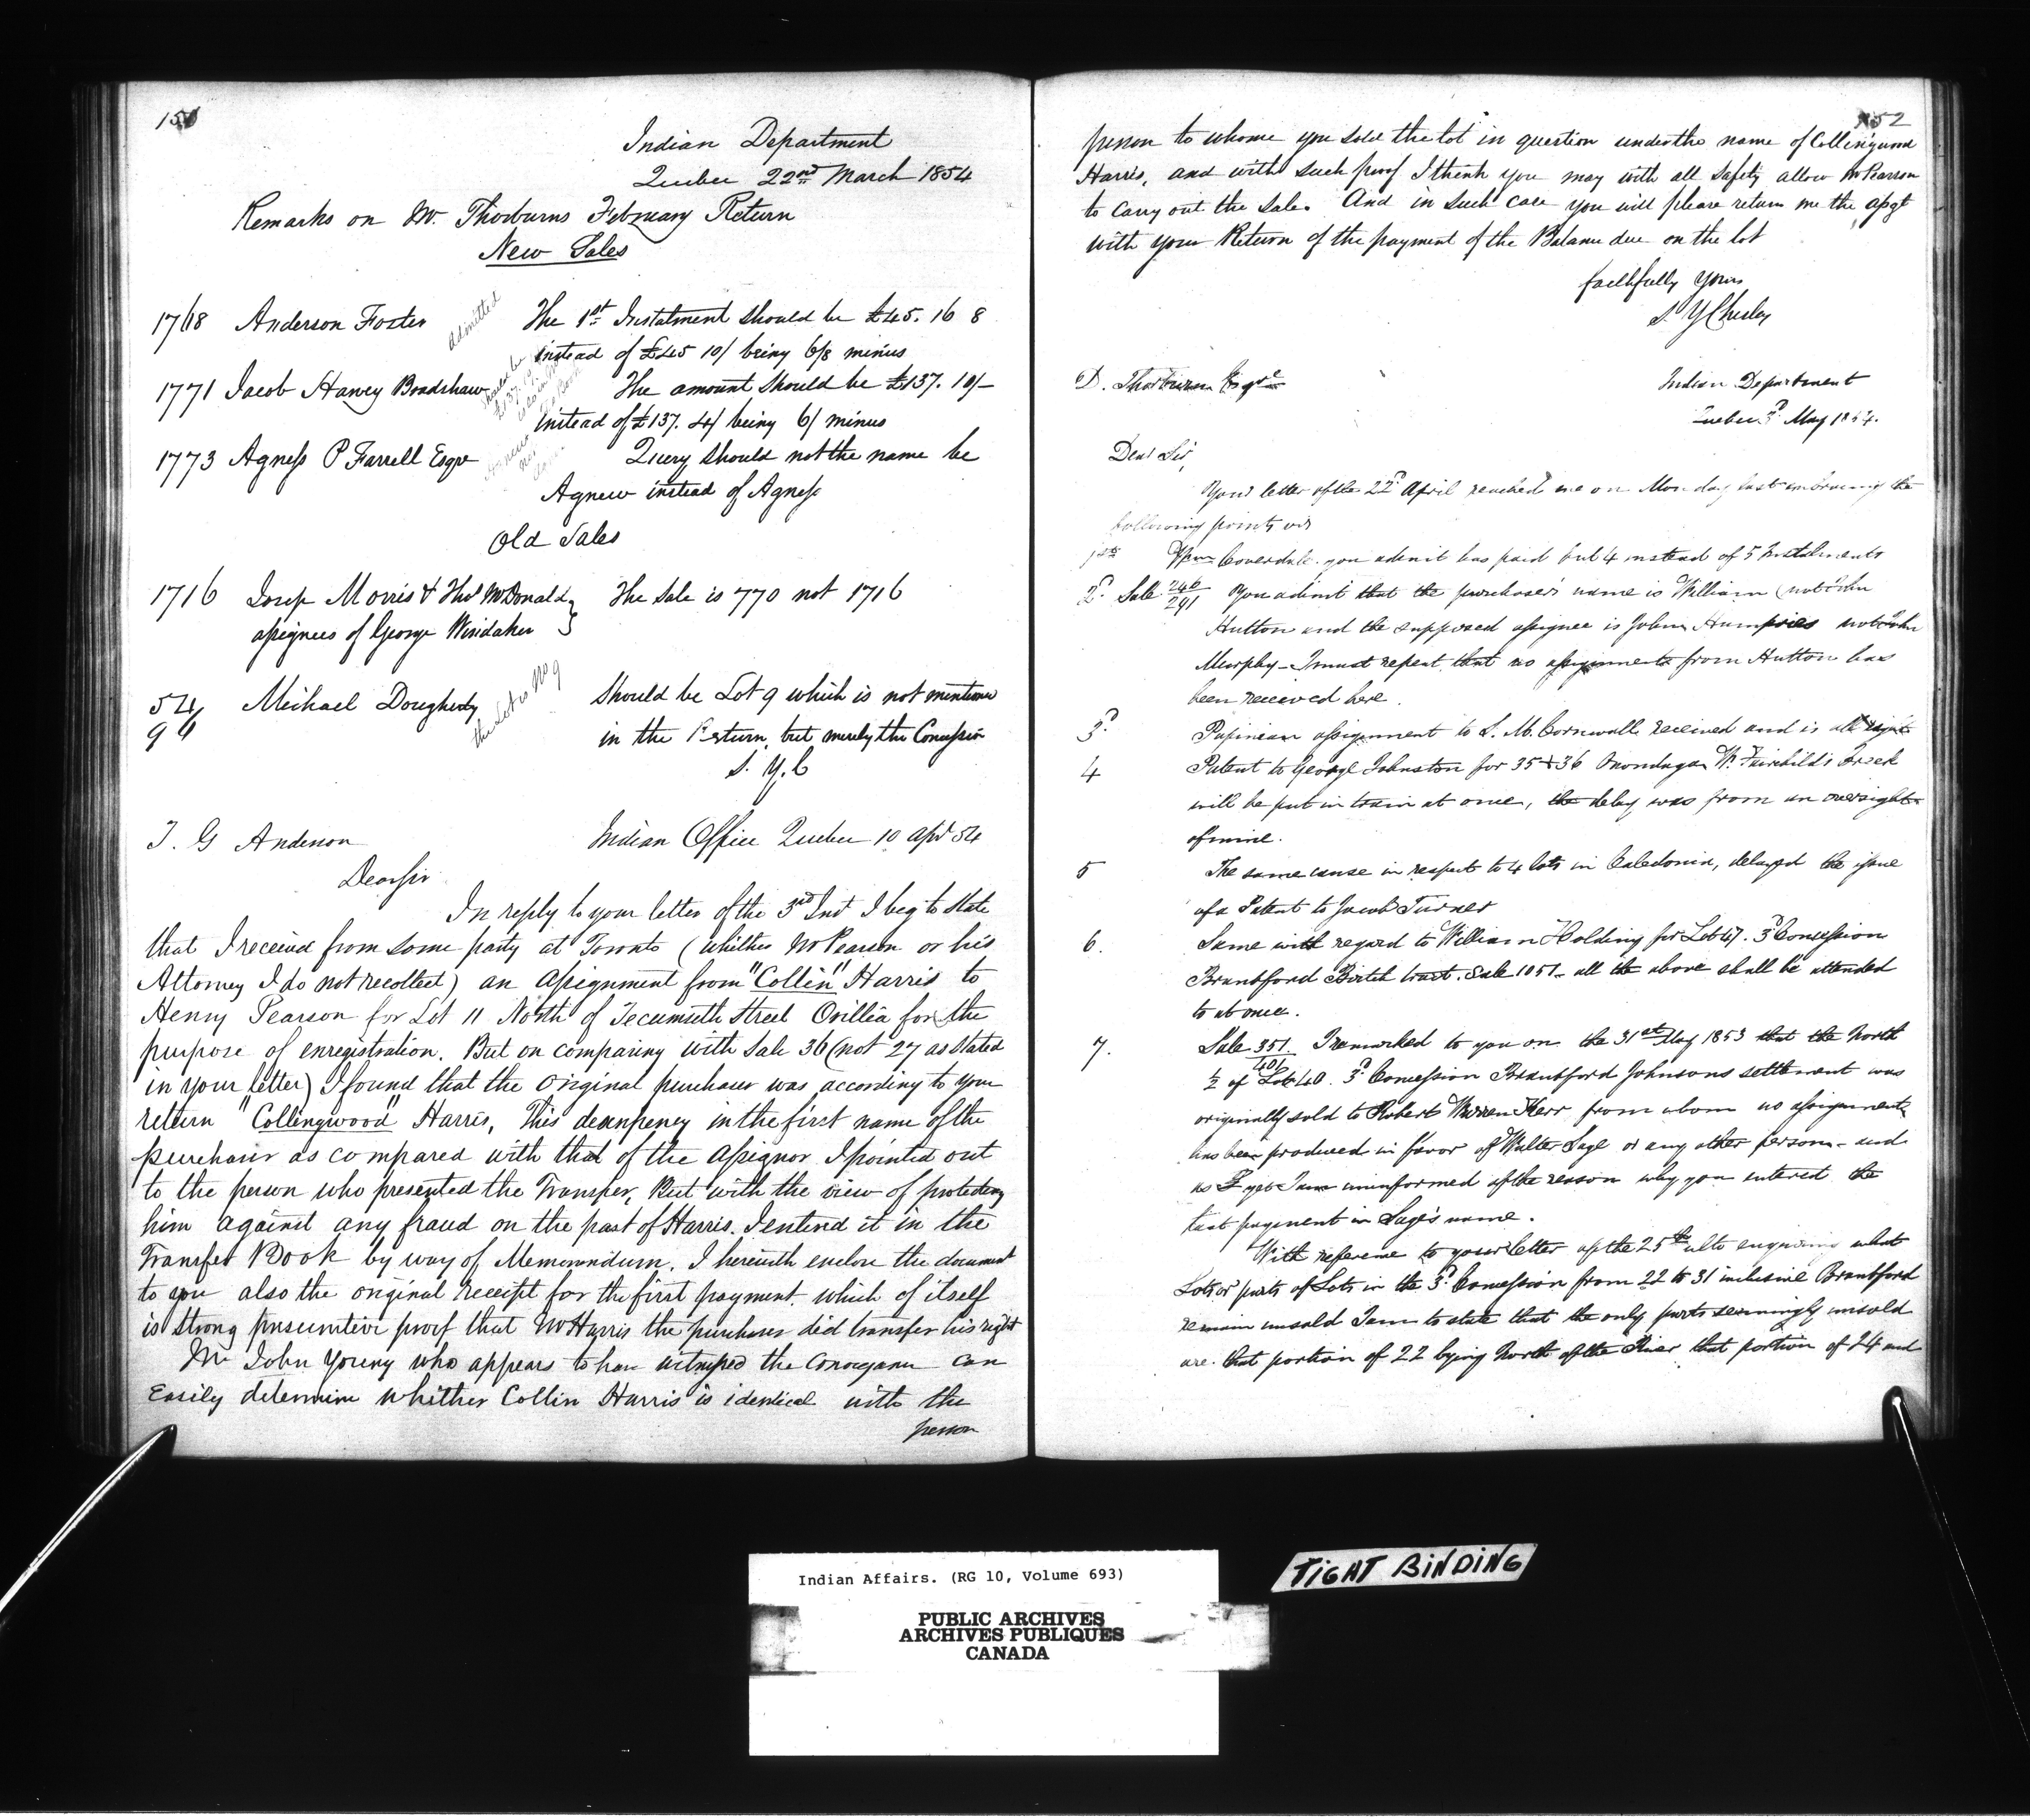 151
Indian Department
Quebec 22nd March 1854
Remarks on Mr. Thorburns February Return
New Sales
1768 Anderson Foster admitted The 1st Instalment should be £45. 16 8
instead of £45 10/ being 6/8 minus
1771 Jacob Harvey Bradshaw The amount should be £137. 10/-
instead of £137. 4/ being 6/ minus
1773 Agness P Farrell Esqre Query should not the name be
Agnew instead of Agness
Old Sales
1716 Josep Morris & Thos McDonald The Sale is 770 not 1716
assignees of George Windaker
54/94 Michael Dougherty the Lot is No 9 Should be Lot 9 which is not mentioned
in the Return, but merely the Concession
S. Y. C
T. G Anderson Indian Office Quebec 10 Apl 54
Dear Sir
In reply to your letter of the 3rd Inst I beg to state
that I received from some party at Toronto (whither Mr Pearson or his
Attorney I do not recollect) an assignment from "Collin" Harris to
Henry Pearson for Lot 11 North of Tecumseth Street Orillia for the
purpose of enregistration. But on comparing with Sale 36 (not 27 as stated
in your letter) I found that the original purchaser was according to your
return "Collingwood" Harris, This descrepency in the first name of the
purchaser as compared with that of the assignor I pointed out
to the person who presented the Transfer, But with the view of protecting
him against any fraud on the part of Harris. I entered it in the
Transfer Book by way of Memorandum. I herewith enclose the document
to you also the original receipt for the first payment. which of itself
is strong presumtive proof that Mr Harris the purchaser did transfer his right
Mr John Young who appears to have witnessed the Conveyance can
Easily determine whither Collin Harris is identical with the
person
152
person to whome you sold the lot in question under the name of Collingwood
Harris, and with such proof I think you may with all safety allow Mr Pearson
to carry out the sale. And in such case you will please return me the assgt
with your Return of the payment of the Balance due on the lot
faithfully Yours
S. Y Chesley
D. Thorburn Esqre Indian Department
Quebec 3d May 1854.
Dear Sir,
Your letter of the 22d April reached me on Monday last embracing the
following points viz
1st Wm Coverdale. you admit has paid but 4 instead of 5 Instalments
2d Sale 246/291 You admit that the purchaser's name is William (not John
Hutton and the supposed assignee is John Humpries not John
Murphy - I must repeat that no assignments from Hutton has
been received here.
3d Papineau assignment to S. M. Cornwall received and is all right
4 Patent to George Johnston for 35 & 36 Onondaga W. Fairchild's Creek
will be put in train at once, the delay was from an oversight
of mine.
5 The same cause in respect to 4 lots in Caledonia, delayed the issue
of a Patent to Jacob Turner
6. Same with regard to William Holding for Lot 47. 3d Concession
Brantford Birtch tract. Sale 1051 - all the above shall be attended
to at once.
7. Sale 351/401 I remarked to you on the 31st May 1853 that the North
1/2 of Lot 40. 3d Concession Brantford Johnsons settlement was
originally sold to Robert Warren Kerr from whom no assignments
has been produced in favor of Walter Sage or any other person - and
as yet I am uninformed of the reason why you entered the
last payment in Sage's name.
With reference to your letter of the 25th ulto enquiring what
Lots or parts of Lots in the 3d Concession from 22 to 31 inclusive Brantford
remain unsold I am to state that the only parts seemingly unsold
are. that portion of 22 lying North of the River that portion of 24 and
Indian Affairs. (RG 10, Volume 693)
PUBLIC ARCHIVES
ARCHIVES PUBLIQUES
CANADA
TIGHT BINDING